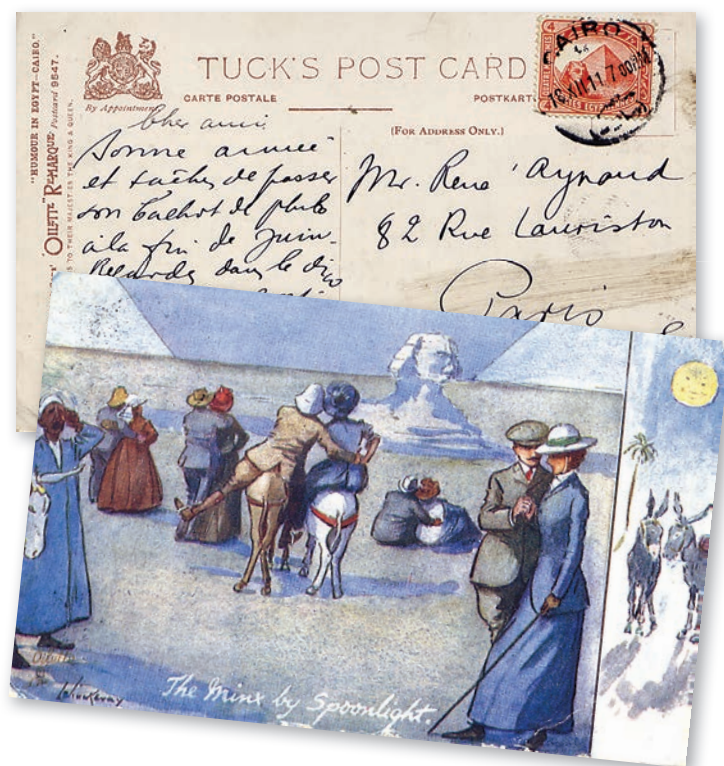 "HUMOUR IN EGYPT—CAIRO."
"OILETTE" REMARQUE Postcard 9547.
S TO THEIR MAJESTIES THE KING & QUEEN.
By Appointment
TUCK'S POST CARD
CARTE POSTALE
POSTKARTE
(FOR ADDRESS ONLY.)
CAIRO
18 XII 11 7 00 PM
4
4
Cher ami
Bonne année
et tâches de passer
ton bachot de philo
à la fin de juin.
Regardes dans le dico
Mr. René Aynard
82 Rue Lauriston
Paris
The Minx by Spoonlight.
Thackeray